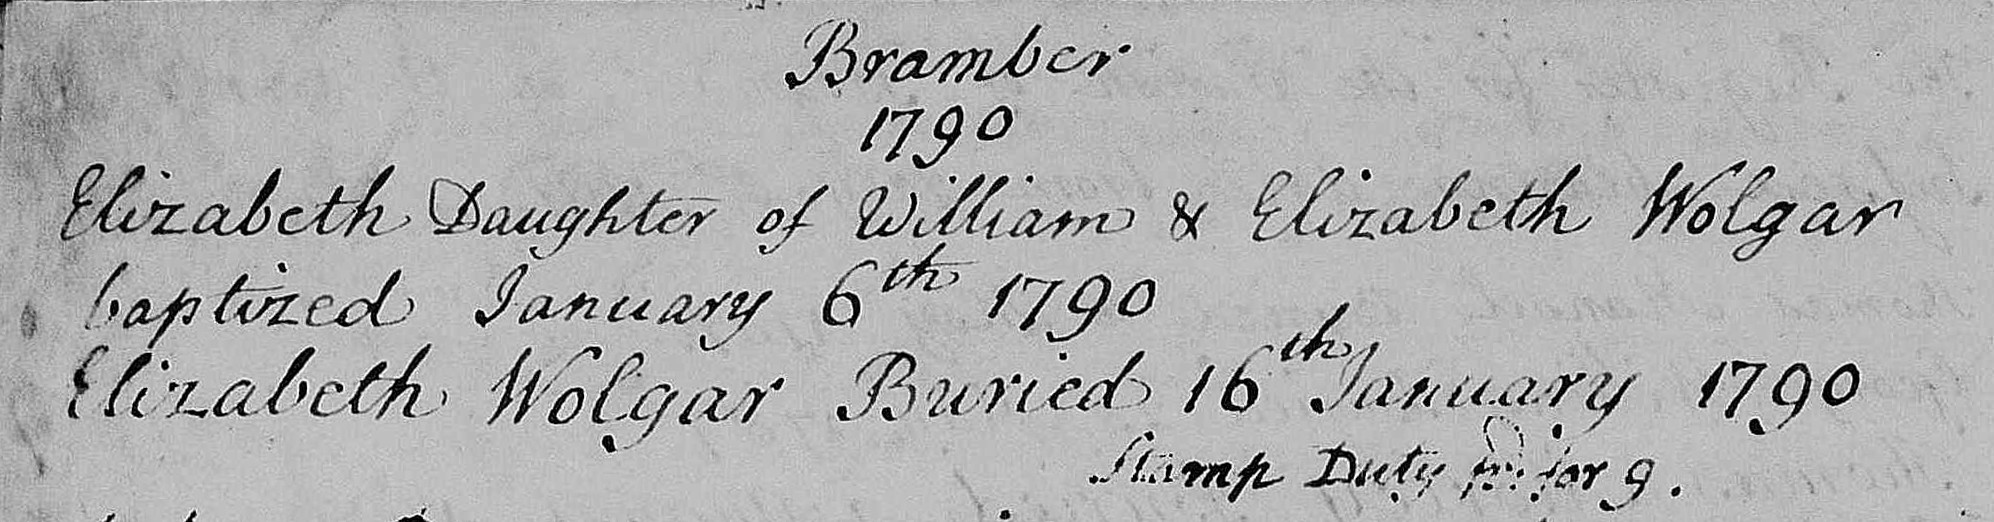 Bramber
1790
Elizabeth Daughter of William & Elizabeth Wolgar
baptized January 6th 1790
Elizabeth Wolgar Buried 16th January 1790
Stamp Duty pd. for 9.